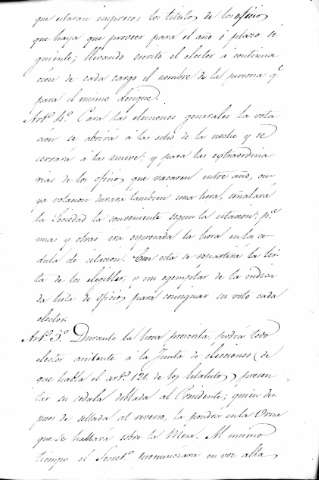 que estaran impresos los titulos de los oficios
que haya que proveer para el año ó plazo si-
guiente; llevando escrito el elector á continua-
cion de cada cargo el nombre de la persona q.e
para el mismo designe.
Art.o 4.o Para las elecciones generales la vota-
cion se abrirá á las siete de la noche y se
cerrará á las nueve; y para las extraordina-
rias de los oficios que vacaren entre año, cu-
ya votacion durará tambien una hora, señalará
la Sociedad la conveniente segun la estacion; p.o
unas y otras era espresada la hora en la cé-
dula de citacion. Con ella se remitirá la lis-
ta de los elegibles, y un ejemplar de la indica-
da lista de oficios para consignar su voto cada
elector.
Art.o 5.o Durante la hora prescrita podrá todo
elector acercarse á la Junta de elecciones (de
que habla el art.o 121 de los Estatutos) y presen-
tar su cedula doblada al Presidente; quien des-
pues de sellada al reverso, la pondrá en la Urna
que se hallará sobre la Mesa. Al mismo
tiempo el Secret.o pronunciará en voz alta,